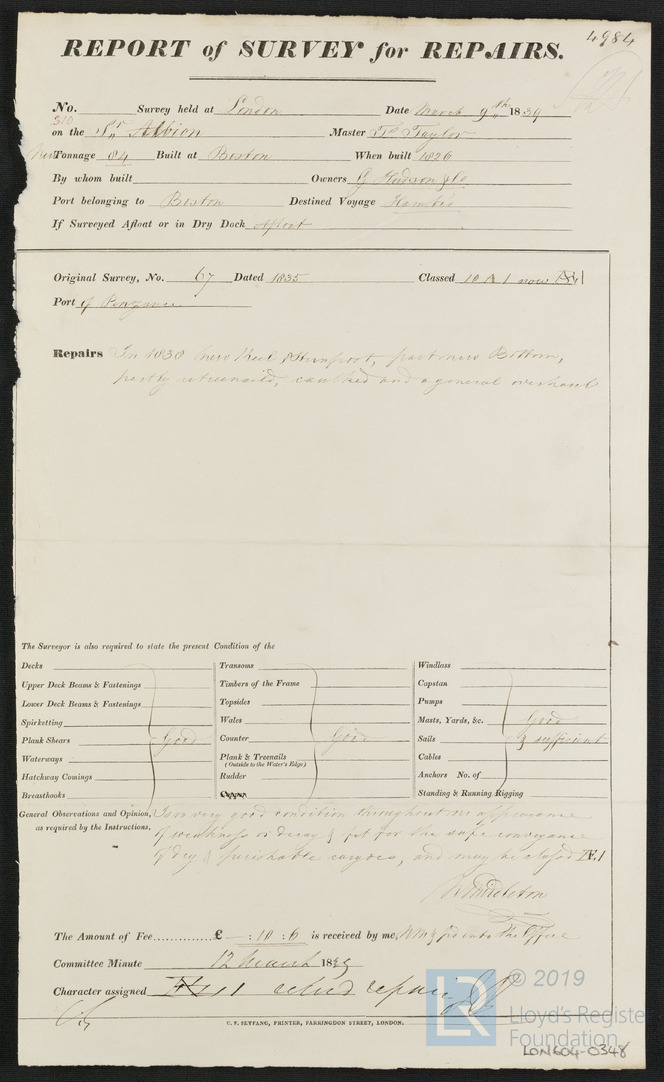 4984
REPORT of SURVEY for REPAIRS.
No. Survey held at London Date March 9th 1839
on the Sr Albion Master T Taylor
Tonnage 84 Built at Boston When built 1826
By whom built Owners G Hudson & Co
Port belonging to Boston Destined Voyage Hambro
If Surveyed Afloat or in Dry Dock Afloat
Original Survey, No. 67 Dated 1835 Classed 10 A 1 now Æ1
Port of Penzance
Repairs In 1838 New Keel & Sternpost, part new Bottom,
partly retreenail'd, caulked and a general overhaul
The Surveyor is also required to state the present Condition of the
Decks Transoms Windlass
Upper Deck Beams & Fastenings Timbers of the Frame Capstan
Lower Deck Beams & Fastenings Topsides Pumps
Spirketting Wales Masts, Yards, &c. Good
Plank Shears Good Counter Good Sails & sufficient
Waterways Plank & Treenails Cables
(Outside to the Water's Edge)
Hatchway Comings Rudder Anchors No. of
Breasthooks Standing & Running Rigging
General Observations and Opinion, Is in very good condition throughout no appearance
as required by the Instructions, of weakness or decay & fit for the safe conveyance
of dry & perishable cargoes, and may be classed Æ1
W Middleton
The Amount of Fee............... £ — : 10 : 6 is received by me, WM & pd into the Office
Committee Minute 12 March 1839
Character assigned Æ1 repairs
C. F. SEYFANG, PRINTER, FARRINGDON STREET, LONDON.
LR © 2019
Lloyd's Register
Foundation
LON604-0348